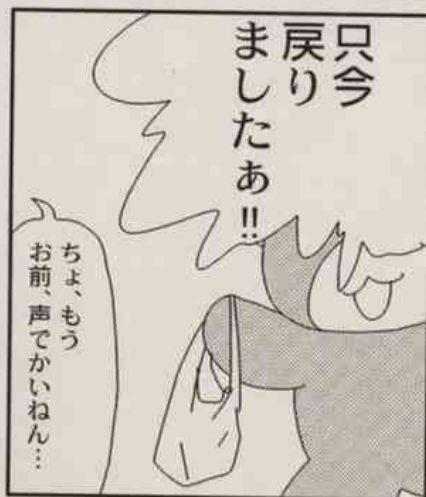 只今
戻り
ましたぁ!!
ちょ、もう
お前、声でかいねん…